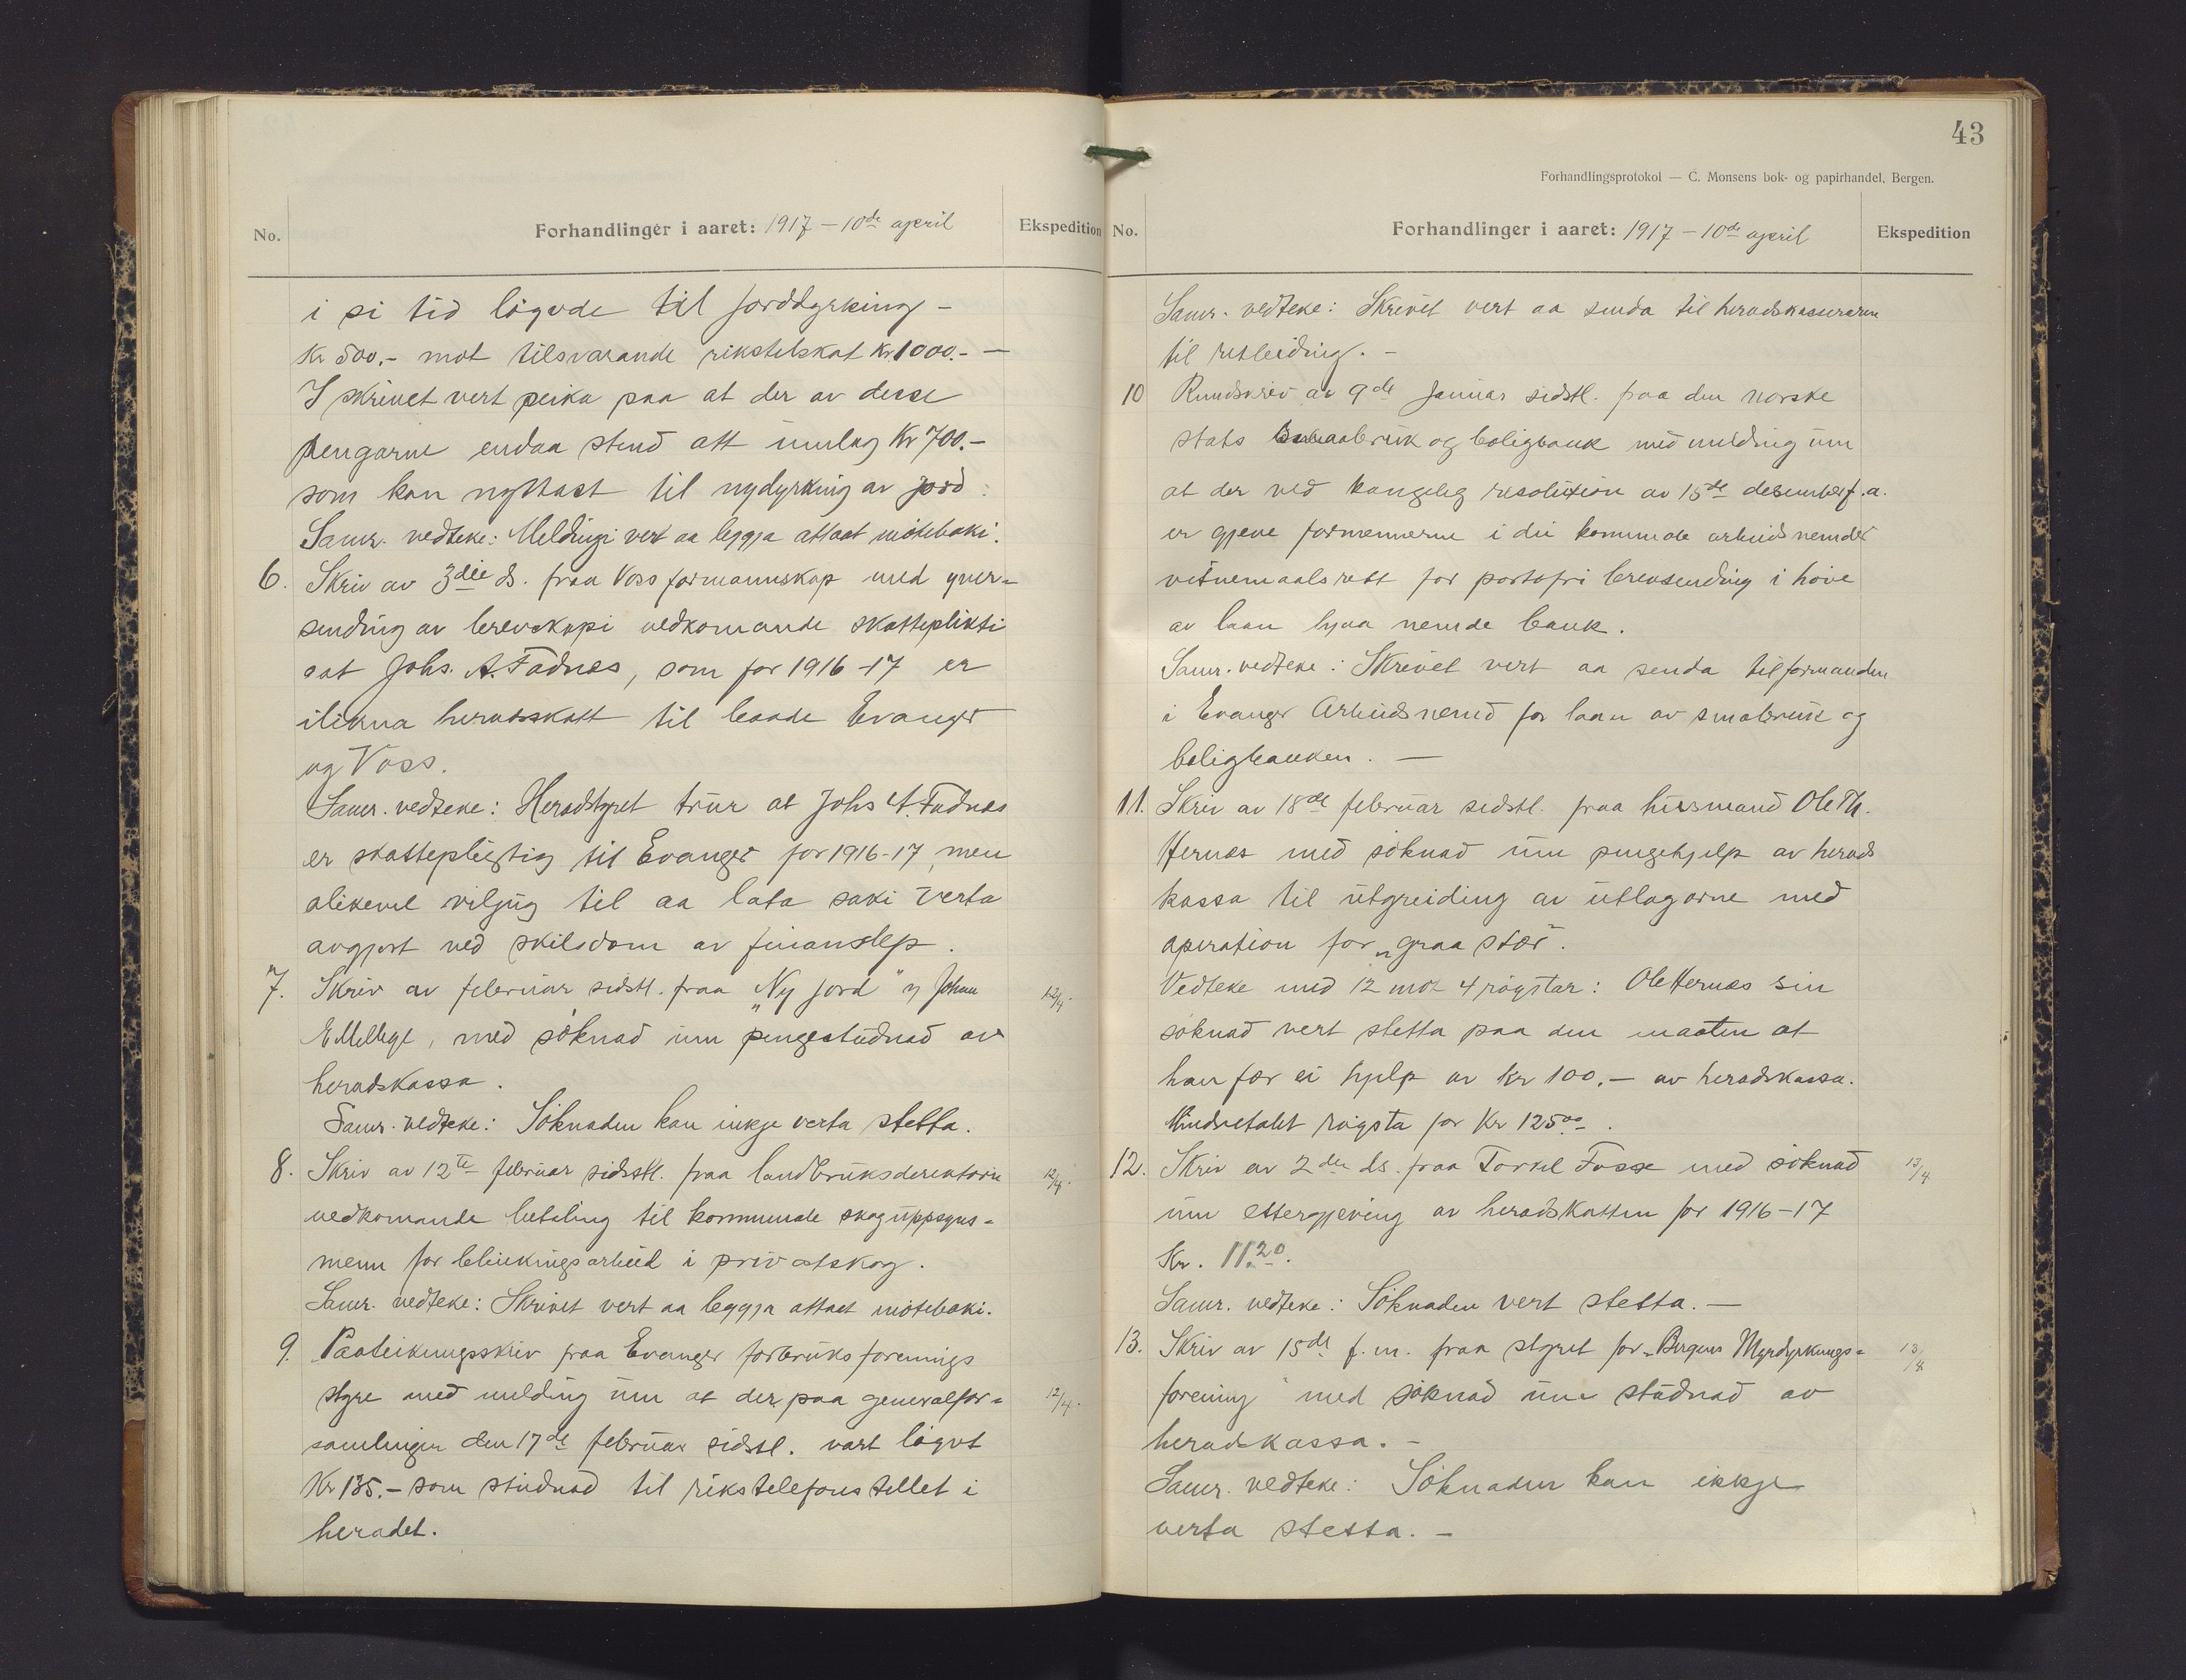 No.
Forhandlinger i aaret: 1917 – 10de april
Ekspedition
i si tid lögvde til jorddyrking –
Kr 500.- mot tilsvarande rikstilskot Kr 1000.- –
I skrivet vert peika paa at der av desse
pengarne endaa stend att umlag Kr 700.-
som kan nyttast til nydyrking av jord:
Samr. vedteke: Meldingi vert aa leggja attaat möteboki.
6. Skriv av 3die ds. fraa Voss formannskap med yver-
sending av brevekopi vedkomande skatteplikti
gat Johs. A. Fadnes, som for 1916-17 er
ilikna heradsskatt til baade Evanger
og Voss.
Samr. vedteke: Heradstyret trur at Johs A. Fadnes
er skattepligtig til Evanger for 1916-17, men
alikevel viljug til aa lata saki verta
avgjort ved skilsdom av finansdep.
7. Skriv av februar sidstl. fraa "Ny Jord" v Johan
E Mellegt, med söknad um pengestudnad av
heradskassa.
12/4.
Samr. vedteke: Söknaden kan inkje verta stetta.
8. Skriv av 12te februar sidstl. fraa landbruksderektoren
vedkomande betaling til kommunale skoguppsyns-
menn for blinkingsarbeid i privatskog.
12/4.
Samr. vedteke: Skrivet vert aa leggja attaat möteboki.
9. Paateikningsskriv fraa Evanger forbruksforenings
styre med melding um at der paa generalfor-
samlingen den 17de februar sidstl. vart lögvt
Kr 135.- som studnad til rikstelefonstellet i
heradet.
12/4.
43
Forhandlingsprotokol — C. Monsens bok- og papirhandel, Bergen.
No.
Forhandlinger i aaret: 1917 – 10de april
Ekspedition
Samr. vedteke: Skrivet vert aa senda til heradskasseraren
til rettleiding. –
10 Rundskriv av 9de Januar sidstl. fraa den norske
stats smaabruk og boligbank med melding um
at der ved kongeleg resolution av 15de desember f.a.
er gjeve formennerne i dei kommunale arbeidsnemder
vitnemaalsrett for portofri brevsending i höve
av laan hjaa nemde bank.
Samr. vedteke: Skrivet vert aa senda til formanden
i Evanger Arbeidsnemd for laan av smabruk og
boligbanken. –
11. Skriv av 18de februar sidstl. fraa husmand Ole Th.
Hernes med söknad um pengehjelp av herads
kassa til utgreiding av utlagorne med
operation for "graa stær".
Vedteke med 12 mot 4 röystar: Ole Hernes sin
söknad vert stetta paa den maaten at
han fær ei hjelp av Kr 100.- av heradskassa.
Mindretalet röysta for Kr 125.00.
12. Skriv av 2den ds. fraa Torkel Fosse med söknad
um ettergjeving av heradskatten for 1916-17
Kr. 11.20.
13/4
Samr. vedteke: Söknaden vert stetta. –
13. Skriv av 15de f.m. fraa styret for "Bergens Myrdyrkings-
forening" med söknad um studnad av
heradskassa. –
13/4
Samr. vedteke: Söknaden kan ikkje
verta stetta. –